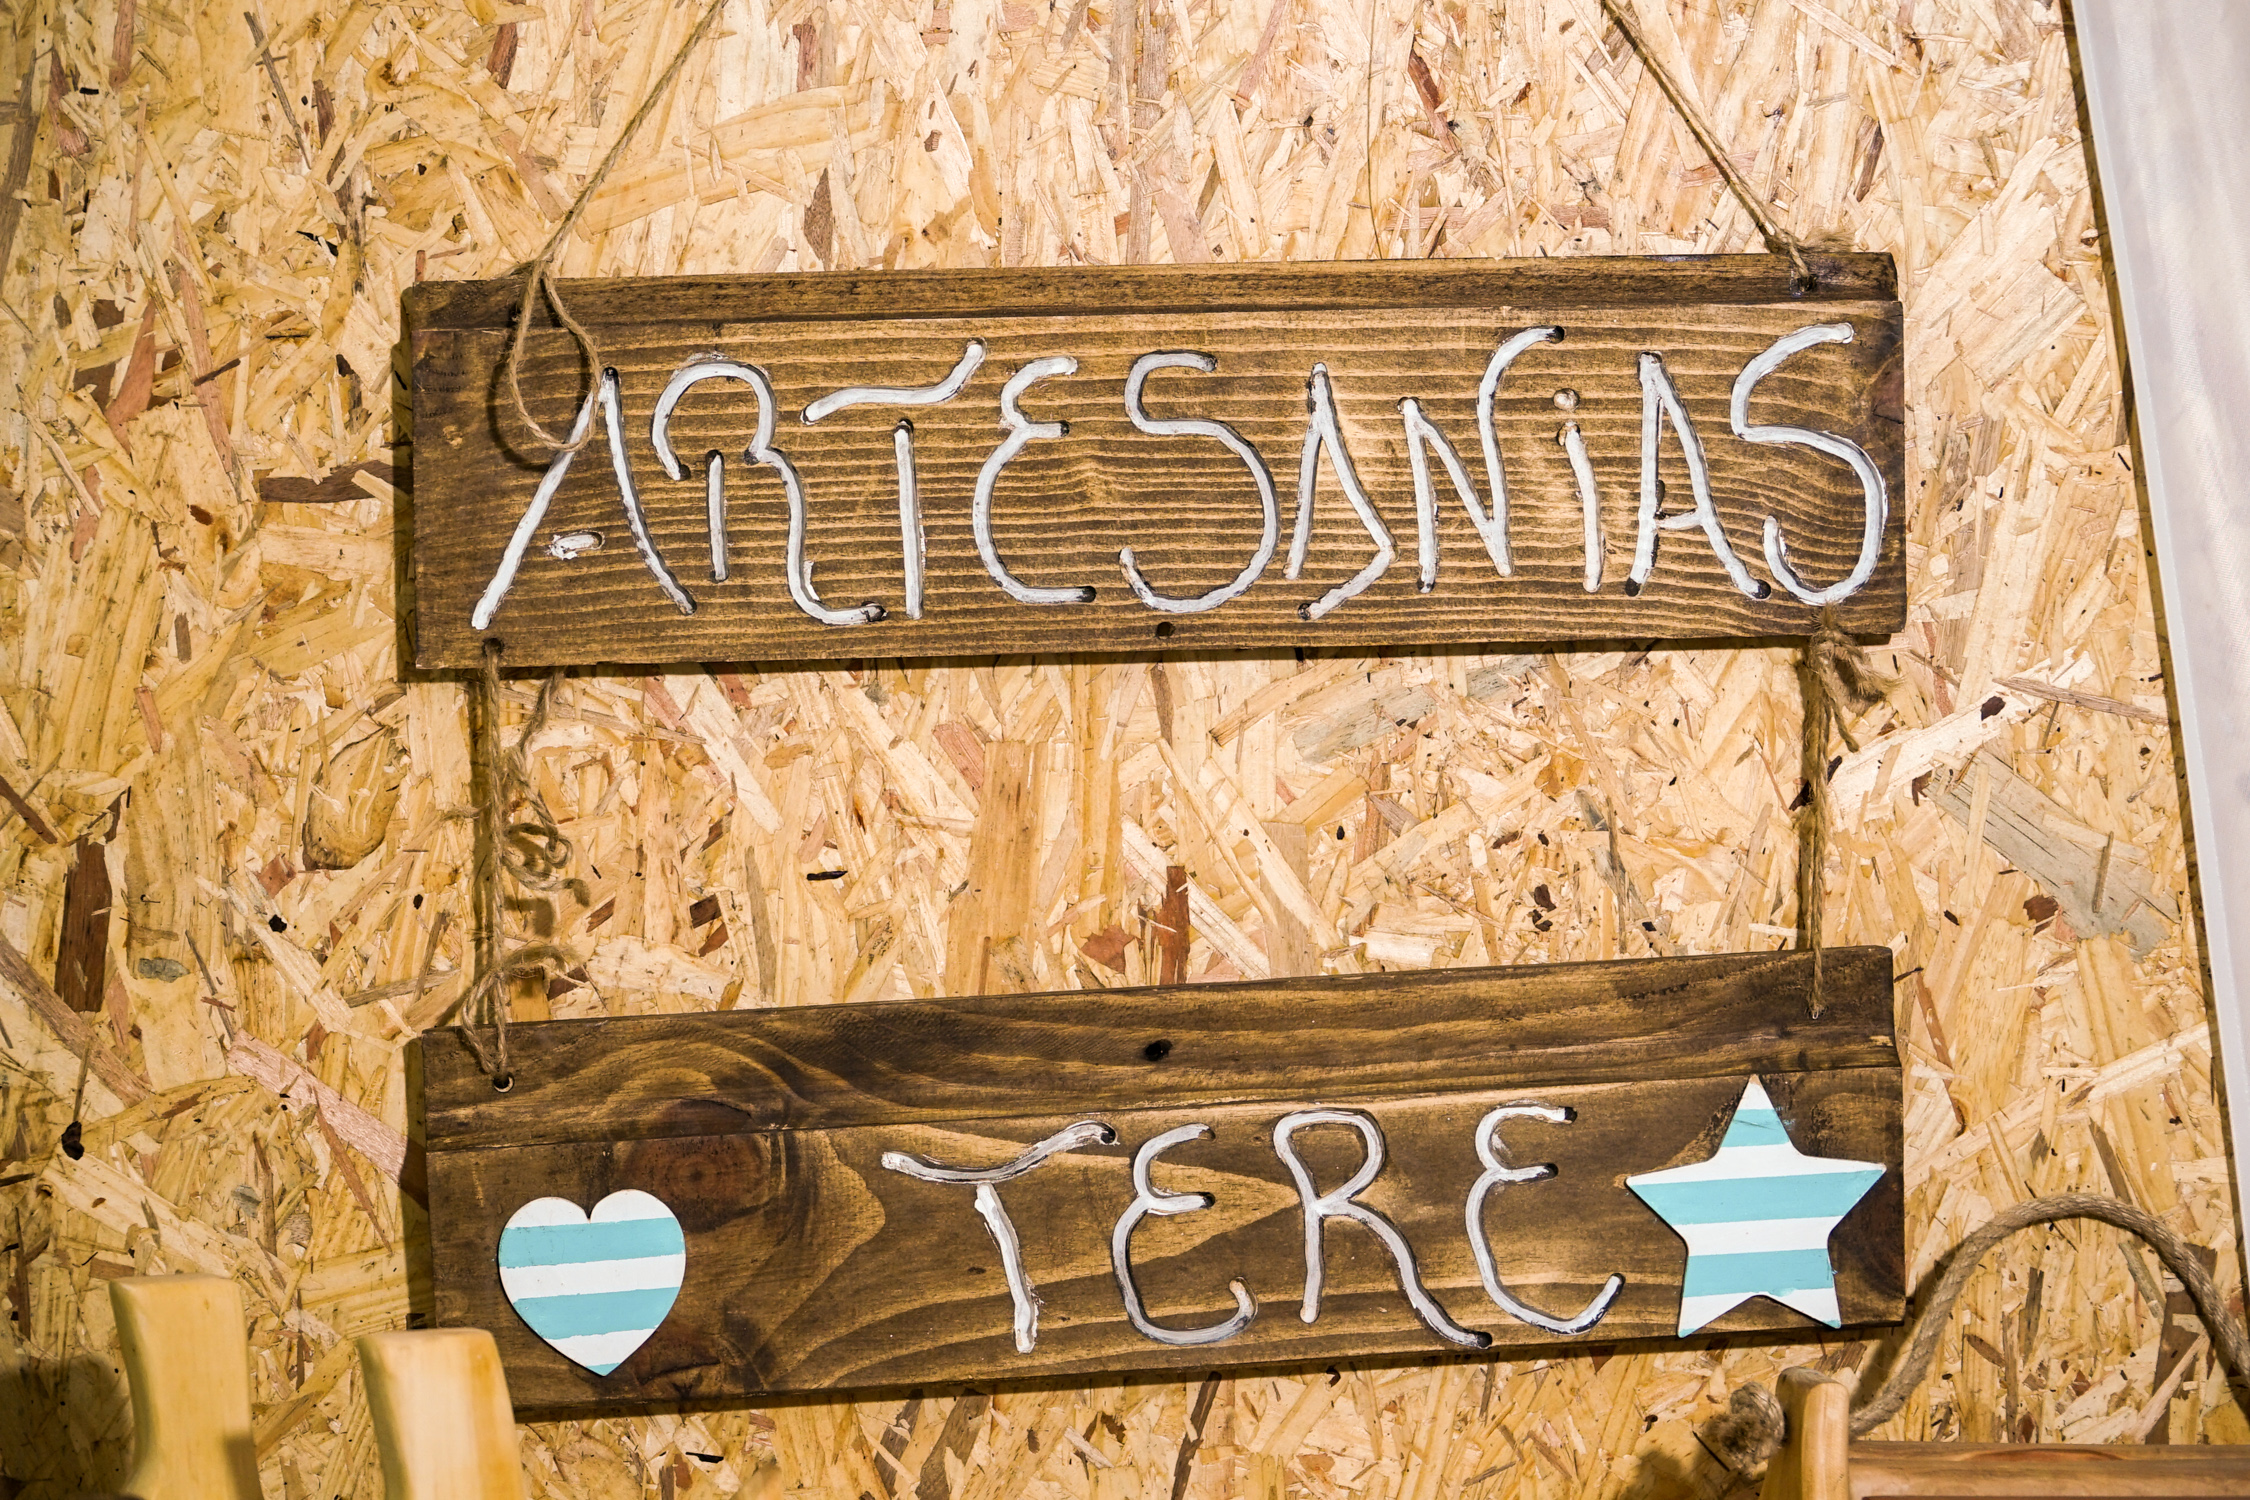 ARTESANiAS
TERE